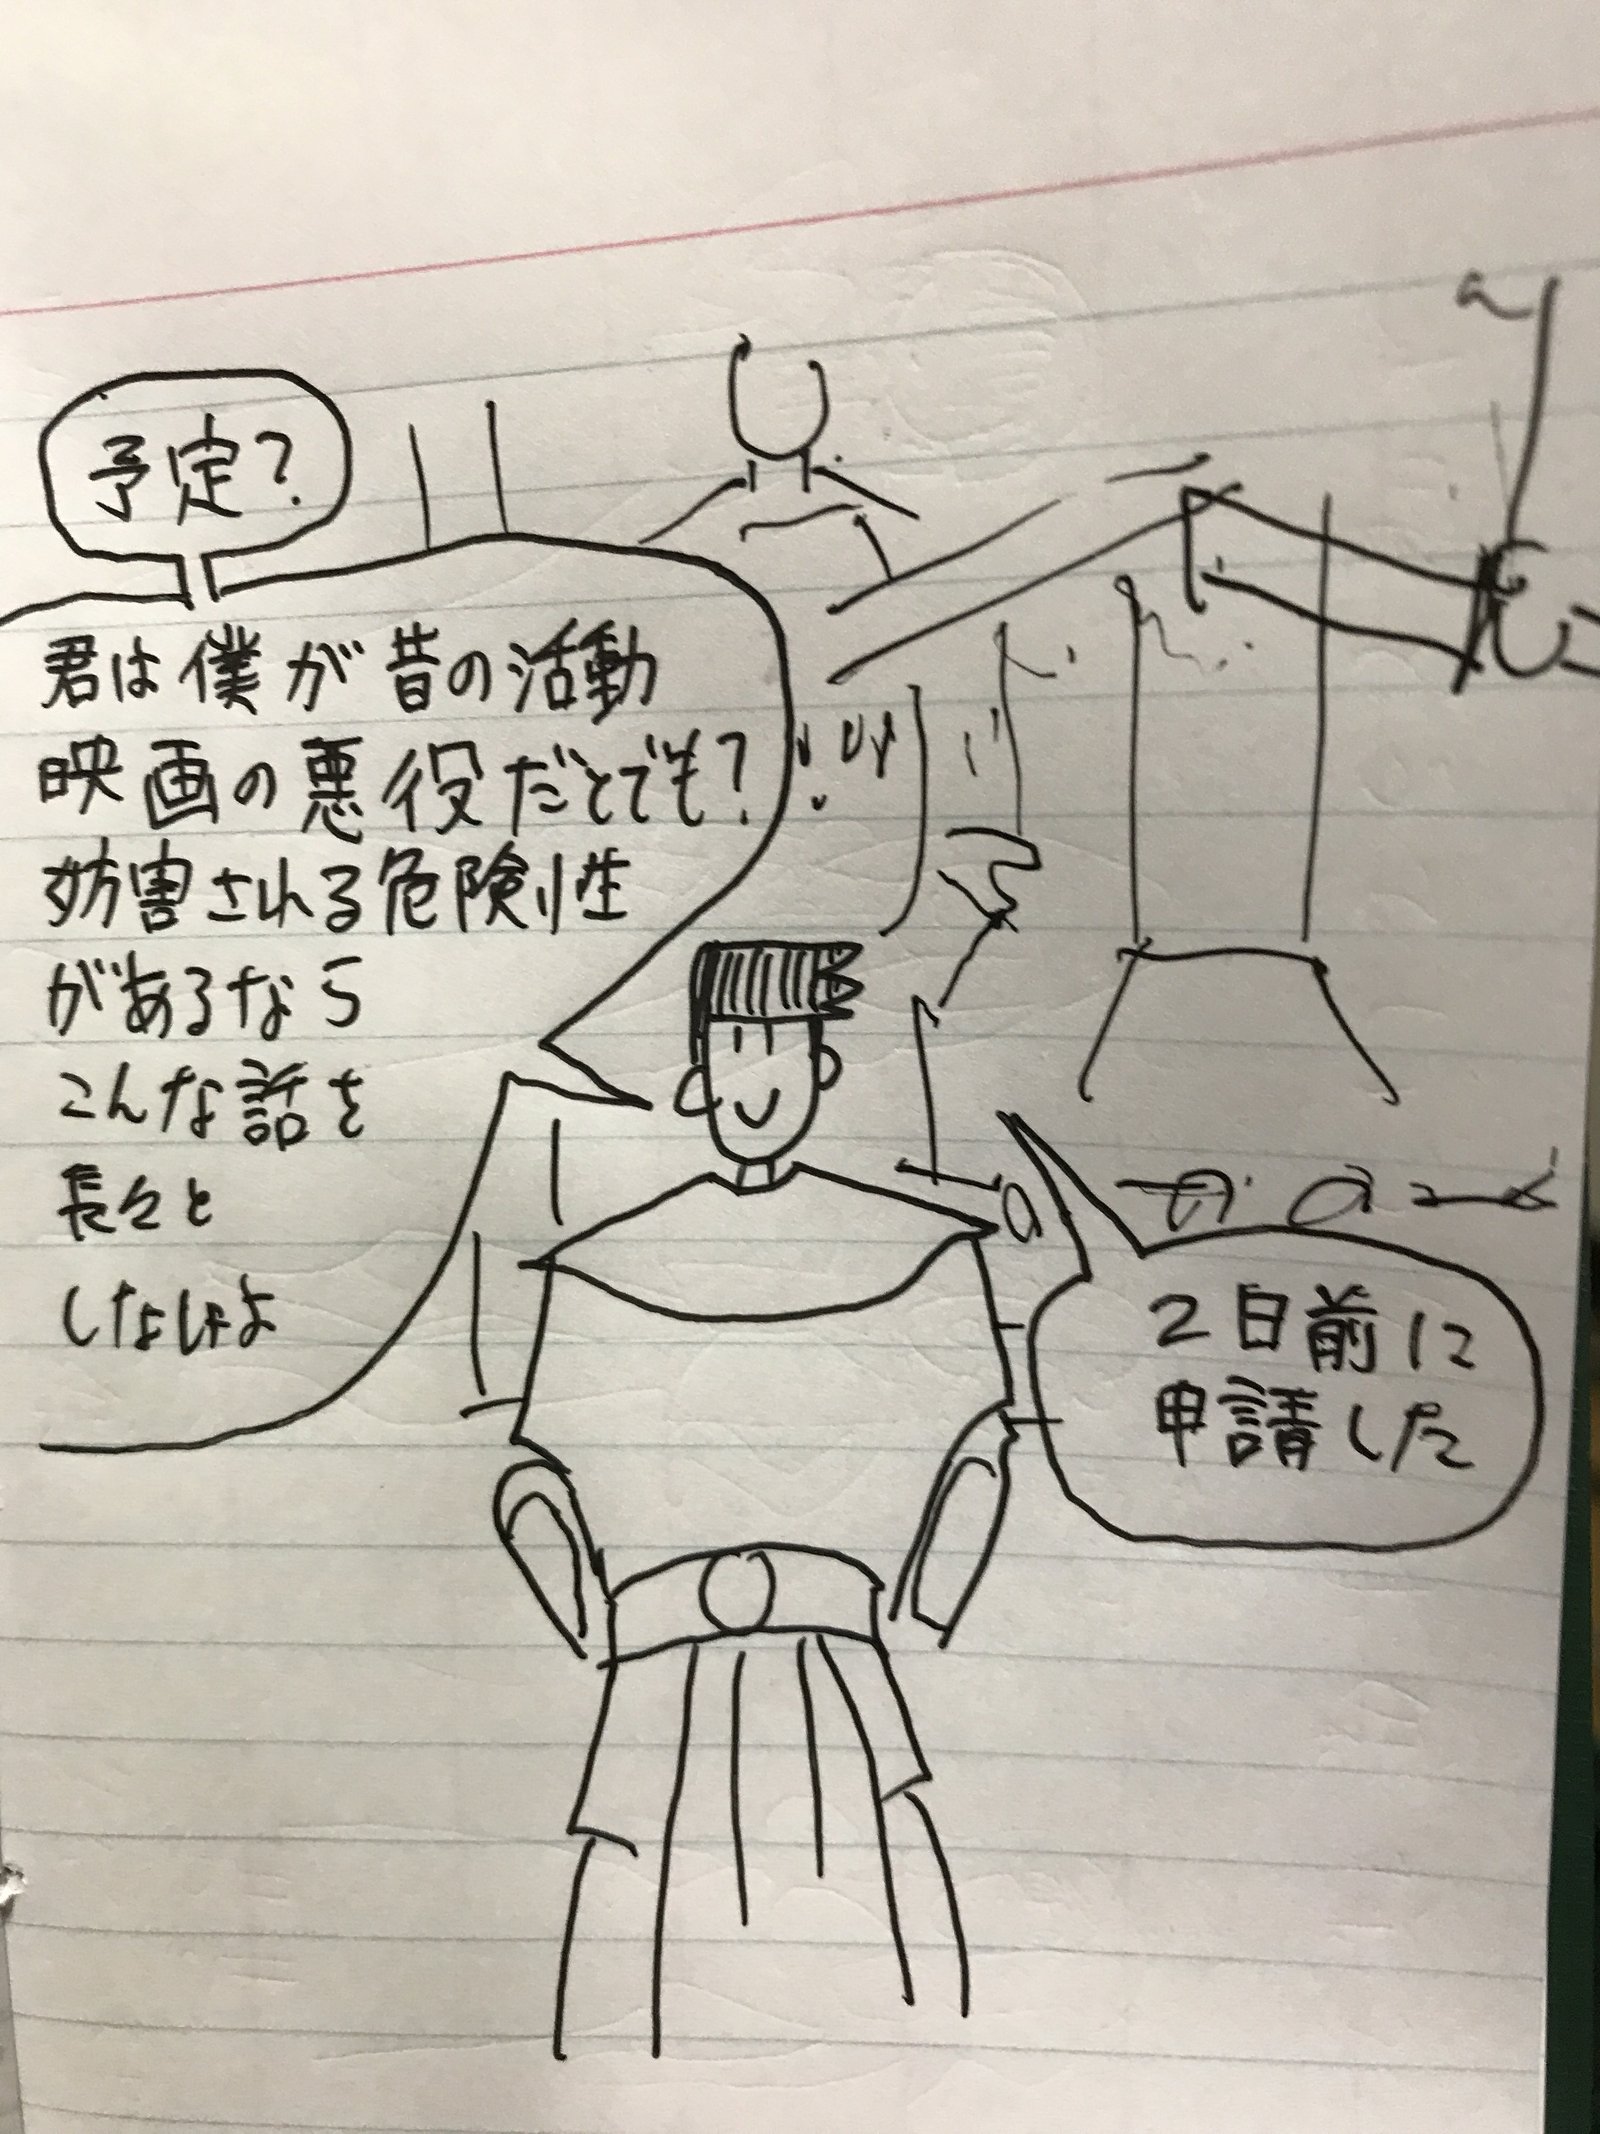 予定?
君は僕が昔の活動
映画の悪役だとでも?
妨害される危険性
があるなら
こんな話を
長々と
しなしゃよ
2日前に
申請した